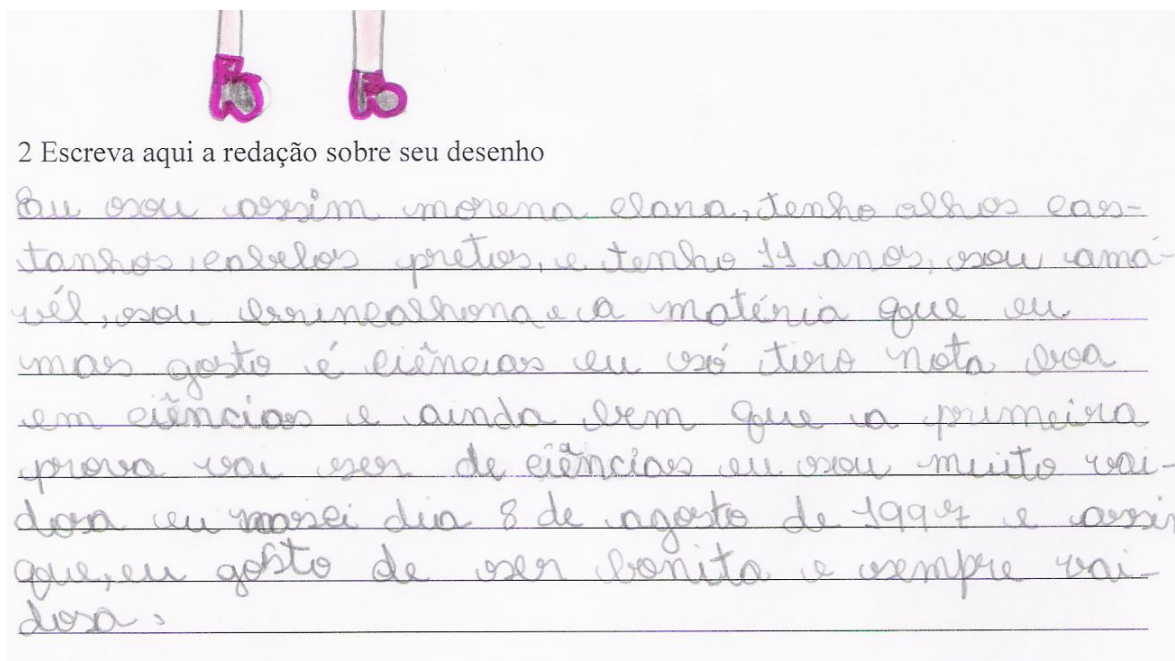 2 Escreva aqui a redação sobre seu desenho
Eu sou assim morena clara, tenho olhos cas-
tanhos, cabelos pretos, e tenho 11 anos, sou amá-
vél, sou brincalhona e a matéria que eu
mas gosto é ciências eu só tiro nota boa
em ciências e ainda bem que a primeira
prova vai ser de ciências eu sou muito vai-
dosa eu nasci dia 8 de agosto de 1997 e assim
que, eu gosto de ser bonita e sempre vai-
dosa.